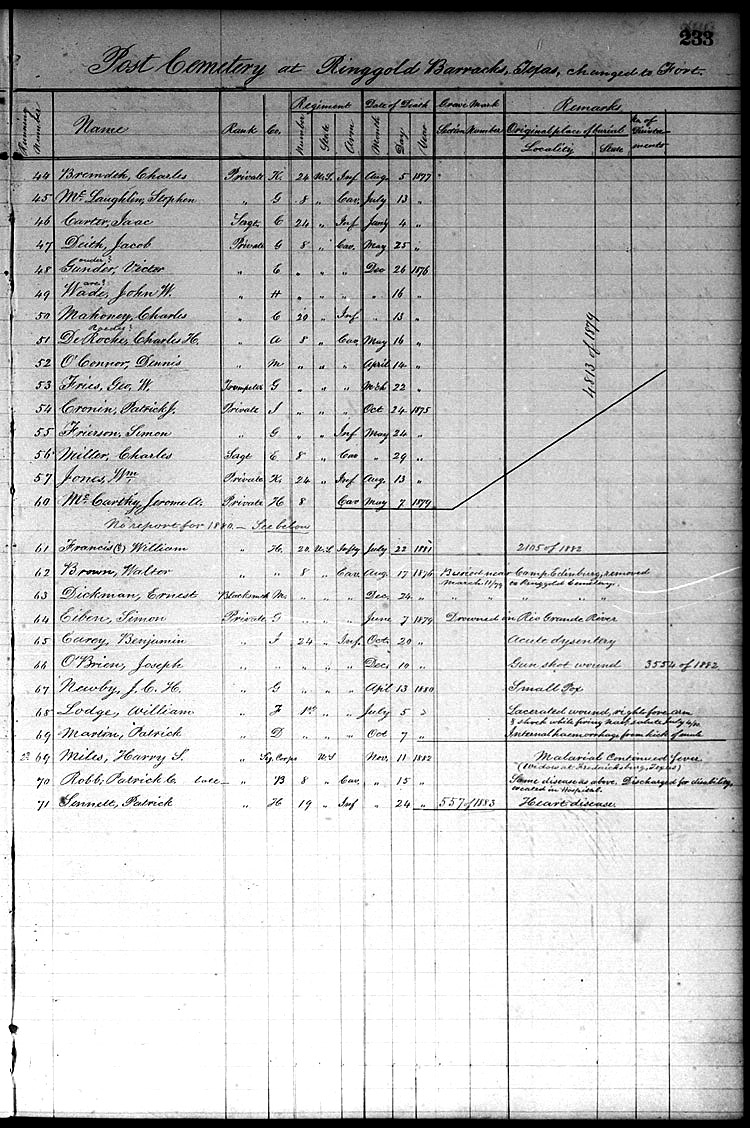 233
Post Cemetery at Ringgold Barracks, Texas, changed to Fort.
Running Number Name Rank Co. Regiment Date of Death Grave Mark Remarks
Number State Arm Month Day Year Section Number Original place of burial No. of
Locality State ments
44 Charles Private K. 24 U.S. Inf Aug. 5 1877
45 Mc Laughlin, Stephen " G 8 " Cav. July 13 "
46 Carter, Isaac Sergt. C 24 " Inf Jan'y 4 "
47 Deith, Jacob Private G 8 " Cav. May 25 "
under?
48 Gunder, Victor " C " " " Dec 26 1876
are?
49 Wade, John W. " H " " " " 16 "
50 Mahoney, Charles " C 20 " Inf " 13 "
Roche?
51 De Roche, Charles H. " A 8 " Cav. May 16 "
52 O'Connor, Dennis " M " " " April 14 "
53 Fries, Geo. W. Trumpeter G " " " Mch 22 "
54 Cronin, Patrick J. Private I " " " Oct 24 1875
55 Frierson, Simon " G " " Inf May 24 "
56 Miller, Charles Sergt E 8 " Cav " 29 "
57 Jones, Wm Private K. 24 " Inf Aug. 13 "
4813 of 1879
60 Mc Carthy, Jerome A. Private H 8 Cav May 7 1879
No report for 1880. — See below
61 Francis (?) William " H. 20 U.S. Infty July 22 1881 2105 of 1882
62 Brown, Walter " " 8 " Cav. Aug. 17 1876 Buried near Camp Edinburg, removed
March 11/79 to Ringgold Cemetery.
63 Dickman, Ernest Blacksmith M. " " " Dec. 24 " " " " "
64 Eiben, Simon Private G " " " June 7 1879 Drowned in Rio Grande River
65 Carey, Benjamin " I 24 " Inf. Oct. 20 " Acute dysentery
66 O'Brien, Joseph " " " " " Dec. 10 " Gun shot wound 3554 of 1882
67 Newby, J. C. H. " G " " " Apil 13 1880 Small Pox
68 Lodge, William " F 1st " " July 5 " Lacerated wound, right fore arm
& shock while firing nat'l salute July
69 Martin, Patrick " D " " " Oct 7 " Internal haemorrhage from kick of mule
69 Miles, Harry S. " Sig. Corps U.S. Nov. 11 1882 Malarial Continued Fever
(Widow at Fredericksburg, Texas)
70 Robb, Patrick C. late— " B 8 " Cav. " 15 " Same disease as above. Discharged for disability,
treated in Hospital.
71 Sennett, Patrick " H 19 " Inf " 24 " 557 of 1883 Heart disease